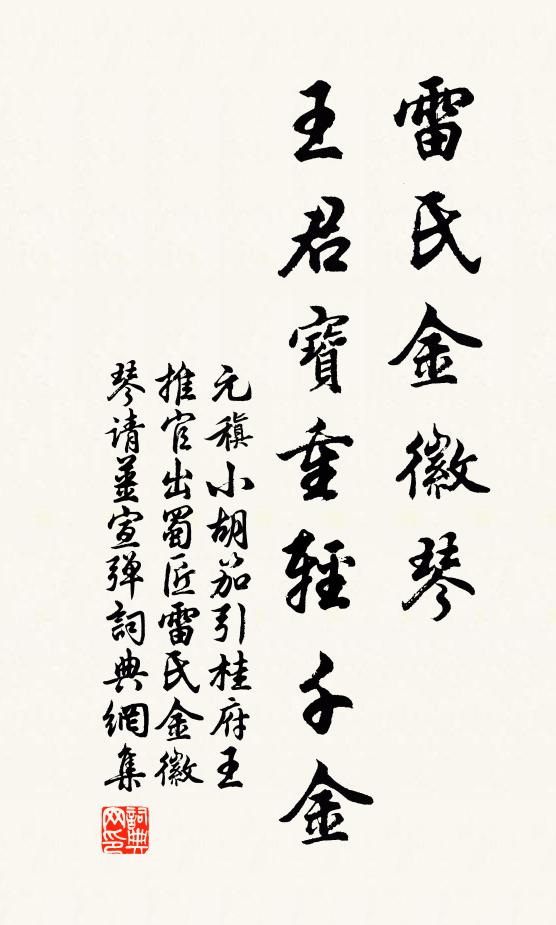 雷氏金徽琴
王君寶重輕千金
元稹小胡笳引桂府王
推官出蜀匠雷氏金徽
琴请姜宣弹詞典網集
詞典
网印